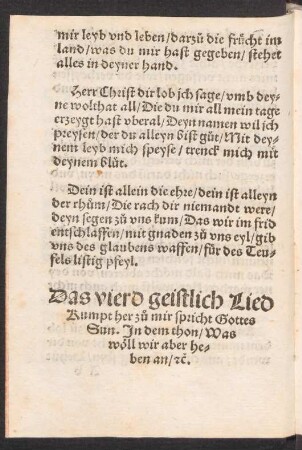 mir leyb vnd leben/darzů die frücht im
land/was du mir hast gegeben/stehet
alles in deyner hand.
Herr Christ dir lob ich sage/vmb dey-
ne wolthat all/Die du mir all mein tage
erzeygt hast vberal/Deyn namen wil ich
preysen/der du alleyn bist gůt/Mit dey-
nem leyb mich speyse/trenck mich mit
deynem blůt.
Dein ist allein die ehre/dein ist alleyn
der rhům/Die rach dir niemandt were/
deyn segen zů vns kum/Das wir im frid
entschlaffen/mit gnaden zů vns eyl/gib
vns des glaubens waffen/für des Teu-
fels listig pfeyl.
Das vierd geistlich Lied
Kumpt her zů mir spricht Gottes
Sun. In dem thon/Was
wöll wir aber he-
ben an/ꝛc̃.